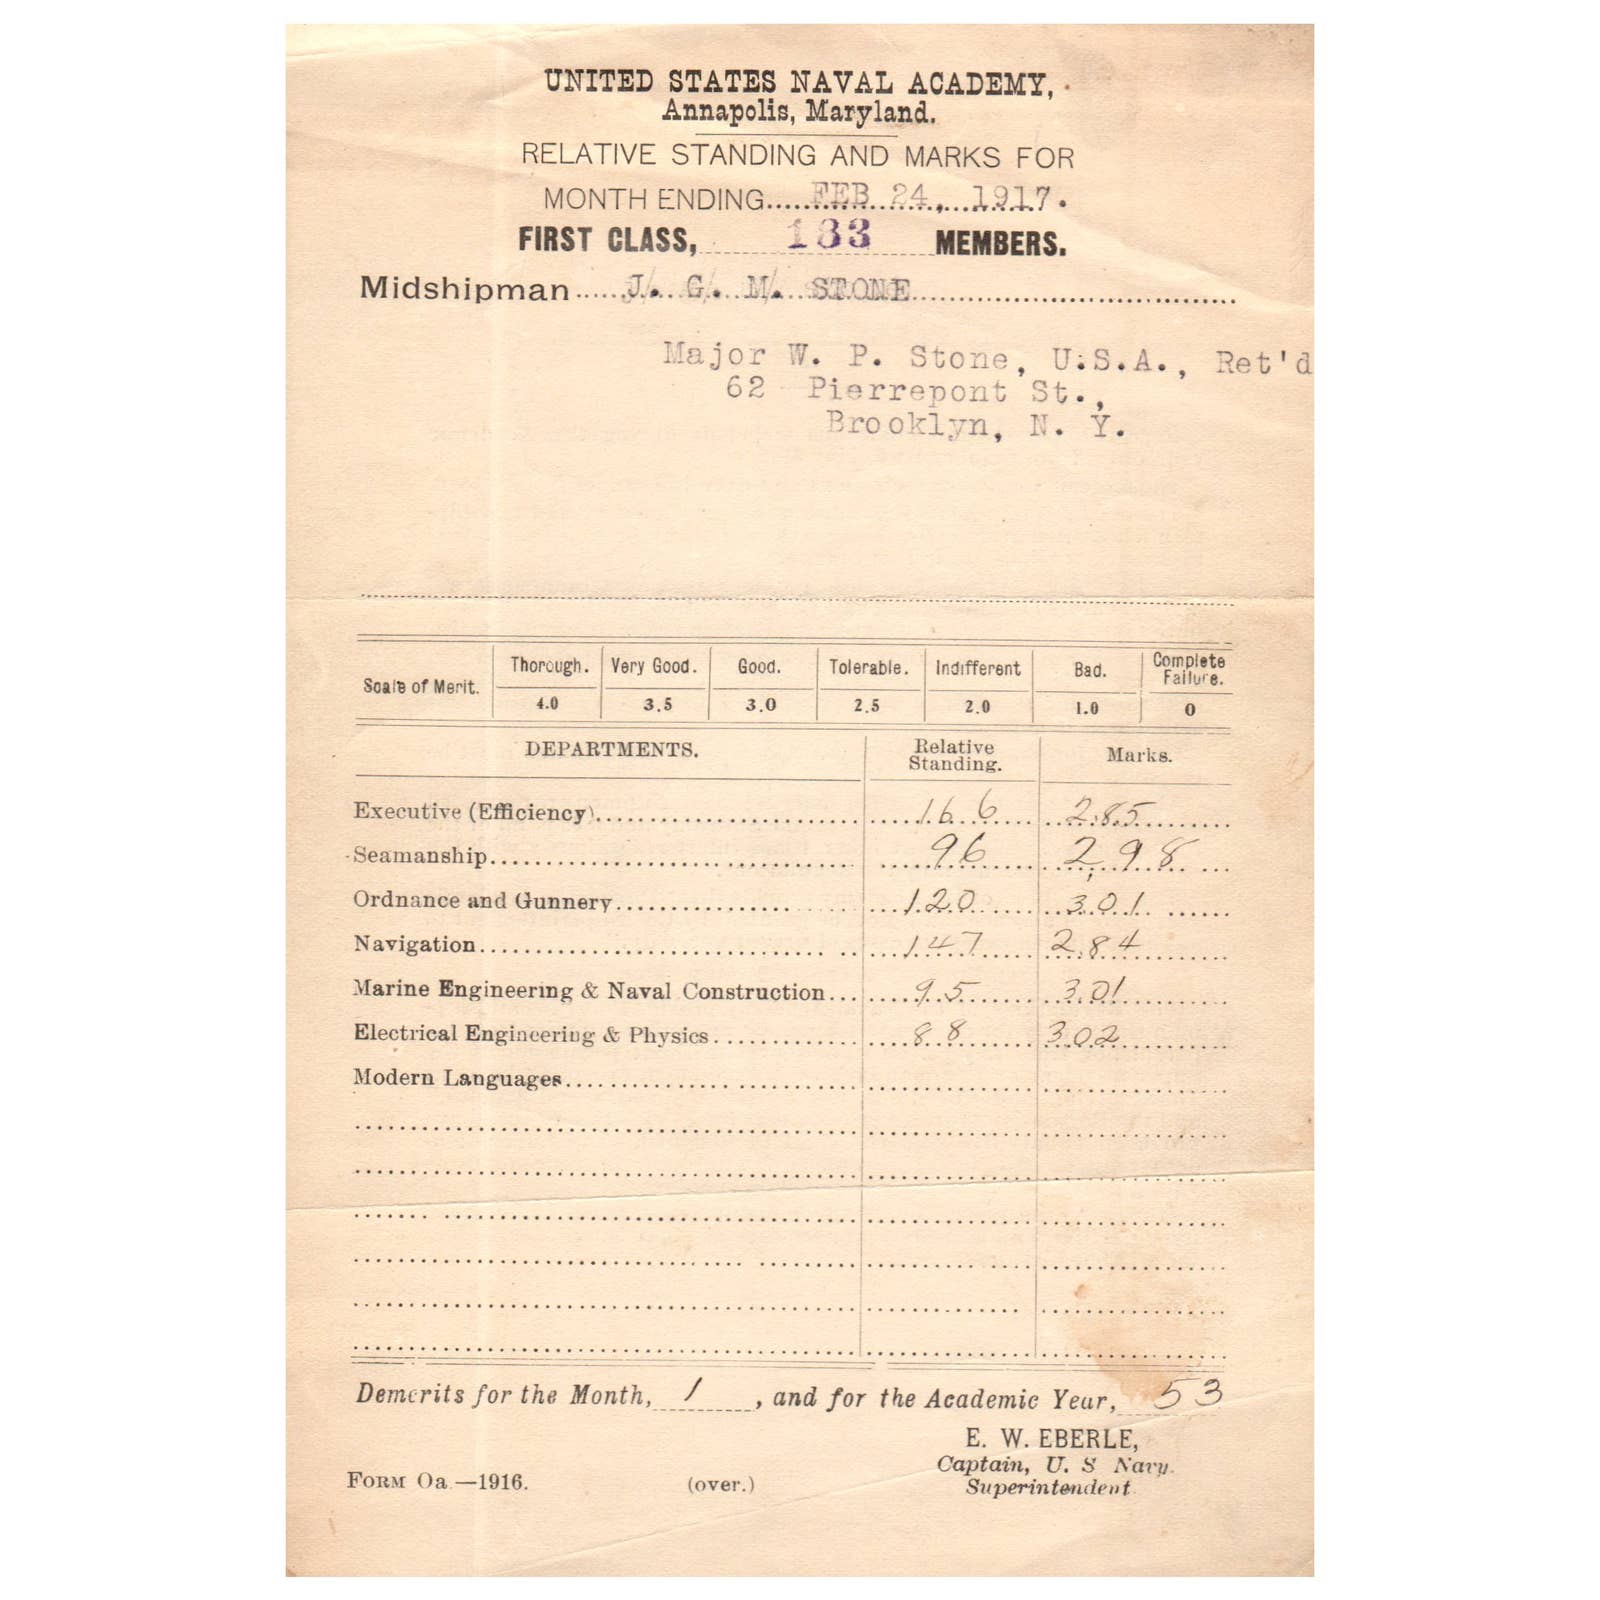 UNITED STATES NAVAL ACADEMY,
Annapolis, Maryland.
RELATIVE STANDING AND MARKS FOR
MONTH ENDING FEB 24, 1917.
FIRST CLASS, 183 MEMBERS.
Midshipman J. G. M. STONE
Major W. P. Stone, U.S.A., Ret'd
62 Pierrepont St.,
Brooklyn, N. Y.
Scale of Merit. Thorough. Very Good. Good. Tolerable. Indifferent Bad. Complete Failure.
4.0 3.5 3.0 2.5 2.0 1.0 0
DEPARTMENTS. Relative Standing. Marks.
Executive (Efficiency) 166 2.85
Seamanship 96 2,98
Ordnance and Gunnery 120 301
Navigation 147 284
Marine Engineering & Naval Construction 95 301
Electrical Engineering & Physics 88 302
Modern Languages
Demerits for the Month, 1, and for the Academic Year, 53
E. W. EBERLE,
Captain, U. S Navy.
Superintendent
FORM Oa.—1916. (over.)